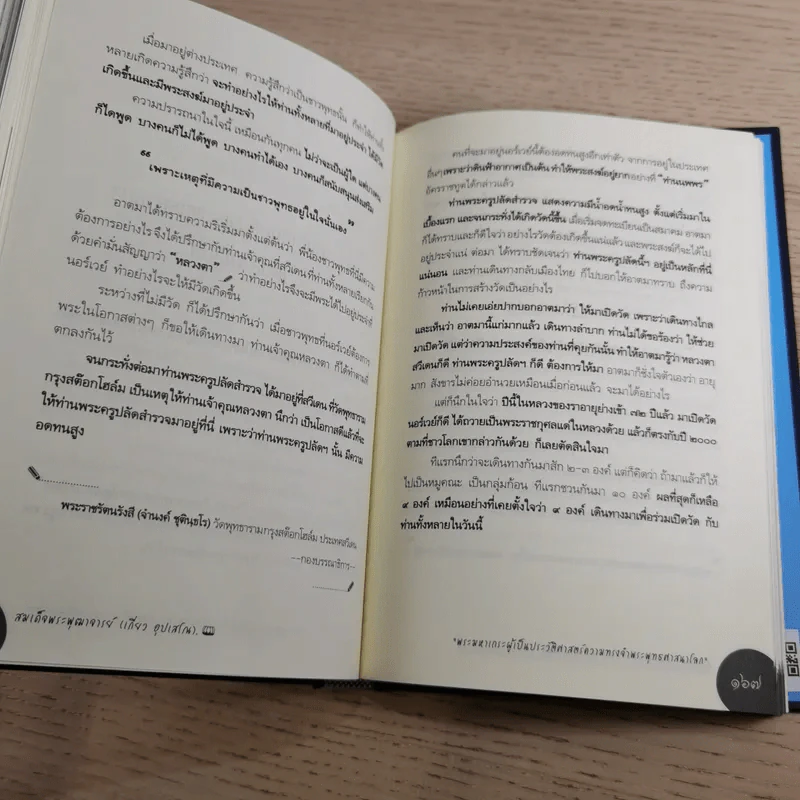 เมื่อมาอยู่ต่างประเทศ ความรู้สึกว่าเป็นชาวพุทธนั้น
หลายเกิดความรู้สึกว่า จะทำอย่างไรให้ท่านทั้งหลายที่มาอยู่ประจำ
เกิดขึ้นและมีพระสงฆ์มาอยู่ประจำ
ความปรารถนาในใจนี้ เหมือนกันทุกคน ไม่ว่าจะเป็นผู้ใด
ก็ได้พูด บางคนก็ไม่ได้พูด บางคนทำได้เอง บางคนก็สนับสนุนส่งเสริม
“เพราะเหตุที่มีความเป็นชาวพุทธอยู่ในใจนั่นเอง”
อาตมาได้ทราบความริเริ่มมาตั้งแต่ต้นว่า พี่น้องชาวพุทธที่นี่มีความ
ต้องการอย่างไร จึงได้ปรึกษากับท่านเจ้าคุณที่สวีเดนที่ท่านทั้งหลายเรียกกัน
ด้วยคำมั่นสัญญาว่า “หลวงตา” ว่าทำอย่างไรจึงจะมีพระได้ไปอยู่ประจำที่
นอร์เวย์ ทำอย่างไรจะให้มีวัดเกิดขึ้น
ระหว่างที่ไม่มีวัด ก็ได้ปรึกษากันว่า เมื่อชาวพุทธที่นอร์เวย์ต้องการ
พระในโอกาสต่างๆ ก็ขอให้เดินทางมา ท่านเจ้าคุณหลวงตา ก็ได้ทำตามที่
ตกลงกันไว้
จนกระทั่งต่อมาท่านพระครูปลัดสำรวจ ได้มาอยู่ที่สวีเดน ที่วัดพุทธาราม
กรุงสต๊อกโฮล์ม เป็นเหตุให้ท่านเจ้าคุณหลวงตา นึกว่า เป็นโอกาสดีแล้วที่จะ
ให้ท่านพระครูปลัดสำรวจมาอยู่ที่นี่ เพราะว่าท่านพระครูปลัดฯ นั้น มีความ
อดทนสูง
พระราชรัตนรังสี (จำนงค์ ชุตินฺธโร) วัดพุทธารามกรุงสต๊อกโฮล์ม ประเทศสวีเดน
--กองบรรณาธิการ--
สมเด็จพระพุฒาจารย์ (เกี่ยว อุปเสโณ)
คนที่จะมาอยู่นอร์เวย์นี้ต้องอดทนสูงอีกเท่าตัว จากการอยู่ในประเทศ
อื่นๆ เพราะว่าดินฟ้าอากาศเป็นต้น ทำให้พระสงฆ์อยู่ยากอย่างที่ “ท่านนพพร”
อัครราชทูตได้กล่าวแล้ว
ท่านพระครูปลัดสำรวจ แสดงความมีน้ำอดน้ำทนสูง ตั้งแต่เริ่มมาใน
เบื้องแรก และจนกระทั่งได้เกิดวัดนี้ขึ้น เมื่อเริ่มจดทะเบียนเป็นสมาคม อาตมา
ก็ได้ทราบและก็ดีใจว่า อย่างไรวัดต้องเกิดขึ้นแน่แล้ว และพระสงฆ์ก็จะได้ไป
อยู่ประจำแน่ ต่อมา ได้ทราบชัดเจนว่า ท่านพระครูปลัดนี้ฯ อยู่เป็นหลักที่นี่
แน่นอน และท่านเดินทางกลับเมืองไทย ก็ไปบอกให้อาตมาทราบ ถึงความ
ก้าวหน้าในการสร้างวัดเป็นอย่างไร
ท่านไม่เคยเอ่ยปากบอกอาตมาว่า ให้มาเปิดวัด เพราะว่าเดินทางไกล
และเห็นว่า อาตมานี้แก่มากแล้ว เดินทางลำบาก ท่านไม่ได้ขอร้องว่า ให้ช่วย
มาเปิดวัด แต่ว่าความประสงค์ของท่านที่คุยกันนั้น ทำให้อาตมารู้ว่า หลวงตา
สวีเดนก็ดี ท่านพระครูปลัดฯ ก็ดี ต้องการให้มา อาตมาก็ชั่งใจตัวเองว่า อายุ
มาก สังขารไม่ค่อยอำนวยเหมือนเมื่อก่อนแล้ว จะมาได้อย่างไร
แต่ก็นึกในใจว่า ปีนี้ในหลวงของเราอายุย่างเข้า ๗๒ ปีแล้ว มาเปิดวัด
นอร์เวย์ก็ดี ได้ถวายเป็นพระราชกุศลแด่ในหลวงด้วย แล้วก็ตรงกับปี ๒๐๐๐
ตามที่ชาวโลกเขากล่าวกันด้วย ก็เลยตัดสินใจมา
ทีแรกนึกว่าจะเดินทางกันมาสัก ๒-๓ องค์ แต่ก็คิดว่า ถ้ามาแล้วก็ให้
ไปเป็นหมู่คณะ เป็นกลุ่มก้อน ทีแรกชวนกันมา ๑๐ องค์ ผลที่สุดก็เหลือ
๙ องค์ เหมือนอย่างที่เคยตั้งใจว่า ๙ องค์ เดินทางมาเพื่อร่วมเปิดวัด กับ
ท่านทั้งหลายในวันนี้
"พระมหาเถระผู้เป็นประวัติศาสตร์ความทรงจำพระพุทธศาสนาโลก"
๑๖๗